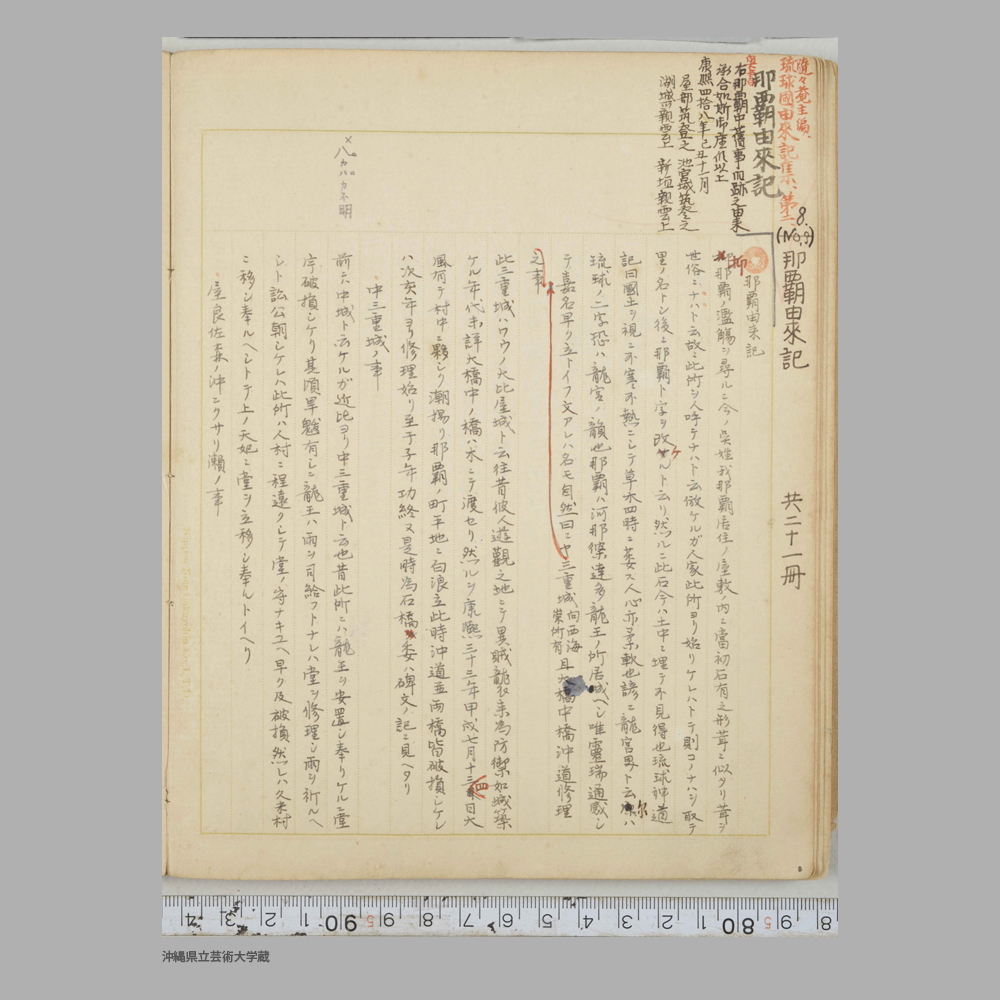 隨々菴主編、
琉球國由來記集、第二、
那覇由來記
奥書
右那覇中舊事旧跡之由来
康熙四拾八年己丑十一月
屋部筑登之 池宮城筑登之
湖城親雲上 新垣親雲上
8.
(No.9)
那覇由來記 共二十一冊
那覇由来記
抑那覇ノ濫觴ヲ尋ルニ今ノ呉姓我那覇居住ノ屋敷ノ内ニ當初石有之形茸ニ似タリ茸ヲ
世俗ニナハト云故ニ此所ヲ人呼テナハト云倣ケルガ人家此所ヨリ始リケレハトテ則コノナハヲ取テ
里ノ名トシ後ニ那覇ト字ヲ改ケルト云リ然ルニ此石今ハ土中ニ埋テ不見得也琉球神道
記曰國土ヲ視ニ不寒不熱ニシテ草木四時ニ萎ス人心亦柔軟也諺ニ龍宮界ト云爾ハ
琉球ノ二字恐ハ龍宮ノ韻也那覇ハ河那婆達多龍王ノ所居成ヘシ唯靈瑞通感シ
テ嘉名早ク立トイフ文アレハ名モ自然曰ニヤ三重城 向西海 崇所有 且大橋中橋沖道修理
之事
此三重城ハワウノ大比屋城ト云往昔彼人遊觀之地ニテ異賊襲来為防禦如城築
ケル年代未詳大橋中ノ橋ハ木ニテ渡セリ然ルヲ康熙三十三年甲戌七月十四日大
風有テ村中ニ夥シク潮揚リ那覇ノ町平地ニ白浪立此時沖道並両橋皆破損シケレ
ハ次亥年ヨリ修理始リ至于子年功終又是時為石橋委ハ碑文ノ記ニ見ヘタリ
中三重城ノ事
前ニハ中城ト云ケルガ近比ヨリ中三重城ト云也昔此所ニハ龍王ヲ安置シ奉リケルニ堂
宇破損シケリ其頃旱魃有シニ龍王ハ雨ヲ司給フトナレハ堂ヲ修理シ雨ヲ祈ルヘ
シト訟公朝シケレハ此所ハ人村ニ程遠クシテ堂ノ守ナキユヘ早ク及破損然レハ久米村
ニ移シ奉ルヘシトテ上ノ天妃ニ堂ヲ立移シ奉ルトイヘリ
屋良佐森ノ沖ニクサリ瀬ノ事
沖縄県立芸術大学蔵
4 3 2 1 90 9 8 7 6 5 4 3 2 1 80 9 8